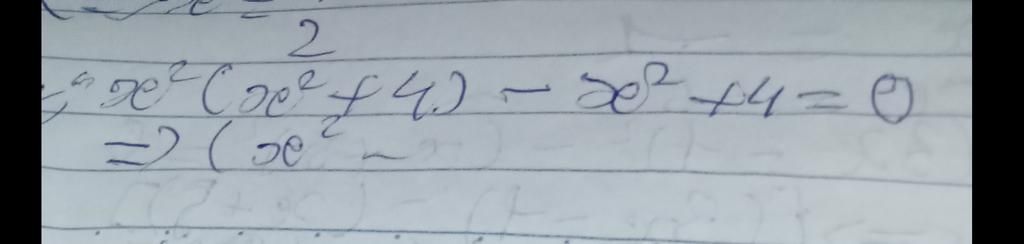 2
x²(x²+4) - x²+4=0
=> (x² -